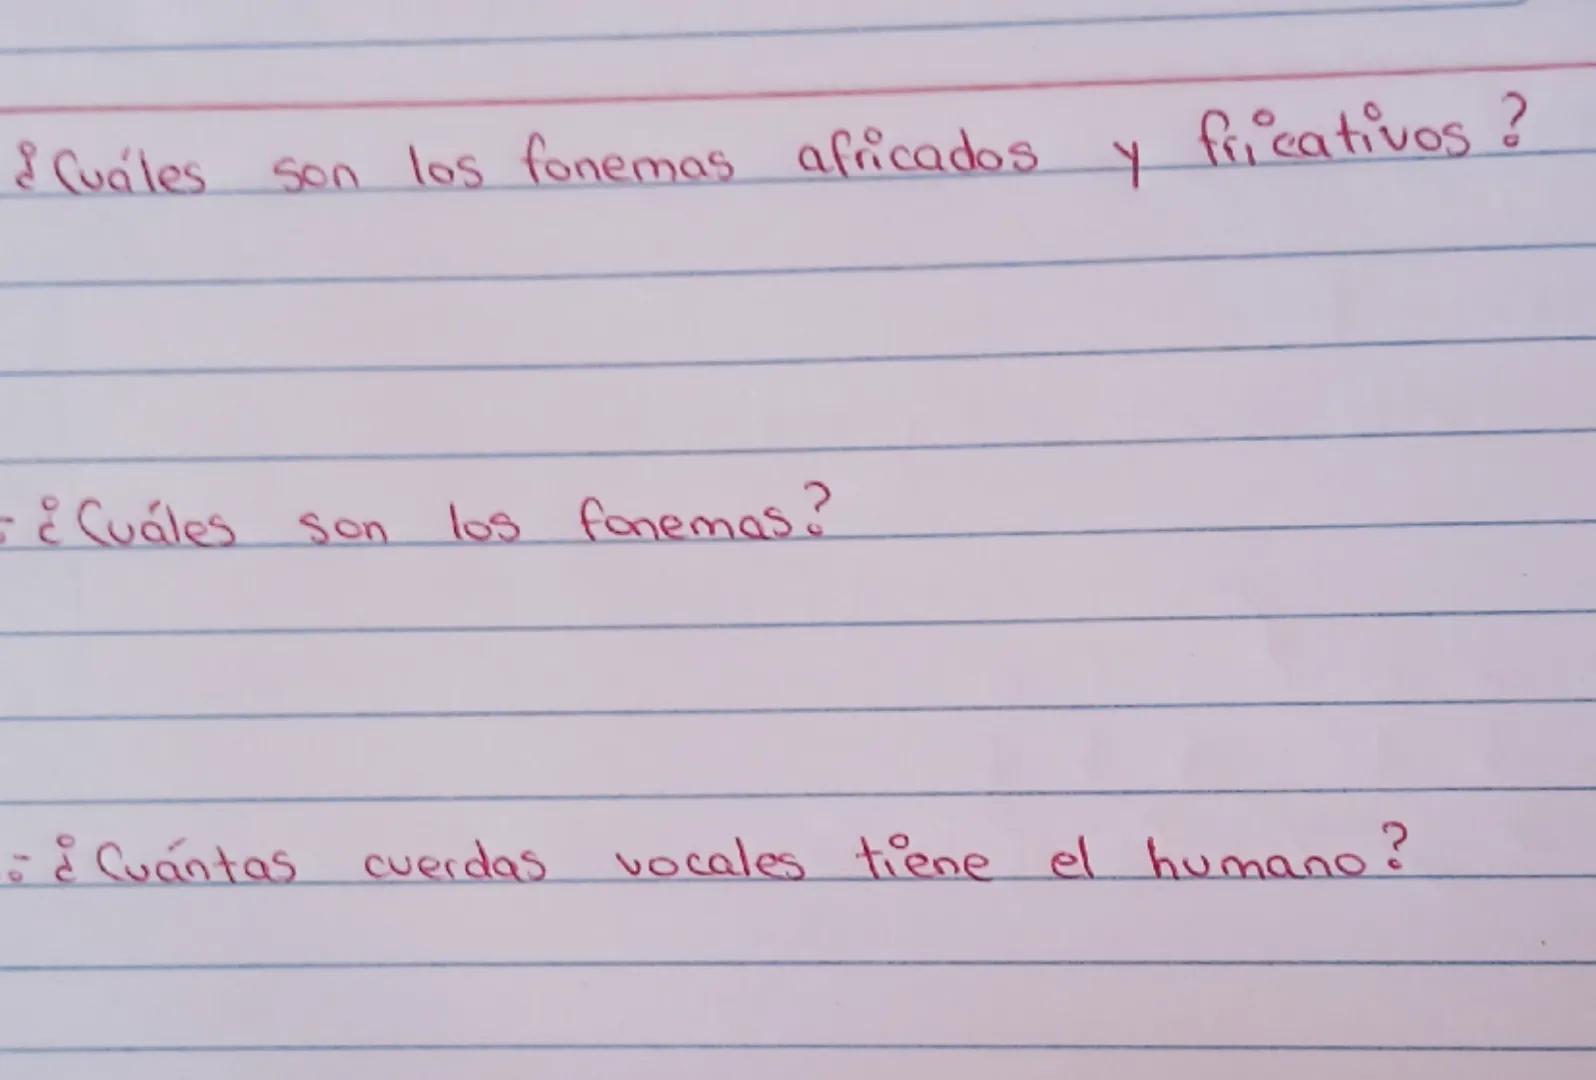 ¿Cuáles son los fonemas africados y fricativos?
-¿Cuáles son los fonemas?
-¿Cuántas cuerdas vocales tiene el humano?